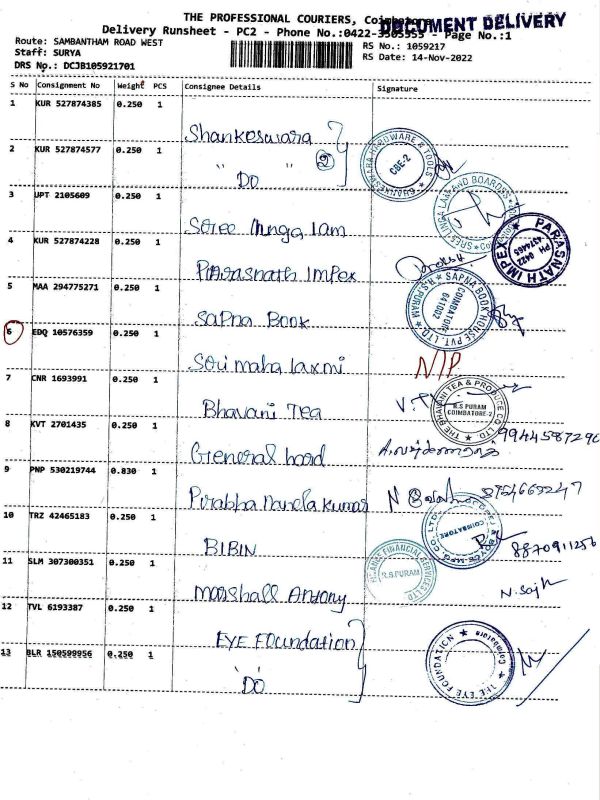 THE PROFESSIONAL COURIERS, Coimbatore
DOCUMENT DELIVERY
Delivery Runsheet - PC2 - Phone No.:0422- Page No.:1
Route: SAMBANTHAM ROAD WEST
RS No.: 1059217
Staff: SURYA
RS Date: 14-Nov-2022
DRS No.: DCJB105921701
S No Consignment No Weight PCS Consignee Details Signature
1 KUR 527874385 0.250 1 Shankeswara
2 KUR 527874577 0.250 1 " DO " 2
SHANKESWARA HARDWARE & TOOLS CBE-2
3 UPT 2105609 0.250 1 Sree lam
4 KUR 527874228 0.250 1 Parasnath Impex
PARASNATH IMPEX PH 0422
5 MAA 294775271 0.250 1 Sapna Book
SAPNA BOOK HOUSE PVT. LTD. R.S.PURAM COIMBATORE 641002
6 EDQ 10576359 0.250 1 Sri maha laxmi N/P
7 CNR 1693991 0.250 1 Bhavani Tea
THE BHAVANI TEA & PRODUCE CO LTD R.S PURAM COIMBATORE-2
8 KVT 2701435 0.250 1 General
9 PNP 530219744 0.830 1 Kumar
10 TRZ 42465183 0.250 1 BIBIN 8870911256
COIMBATORE
11 SLM 307300351 0.250 1 Marshall Antony
FINANCIAL SERVICES LTD R.S.PURAM
12 TVL 6193387 0.250 1 EYE Foundation
13 BLR 150599956 0.250 1 "DO"
THE EYE FOUNDATION Coimbatore